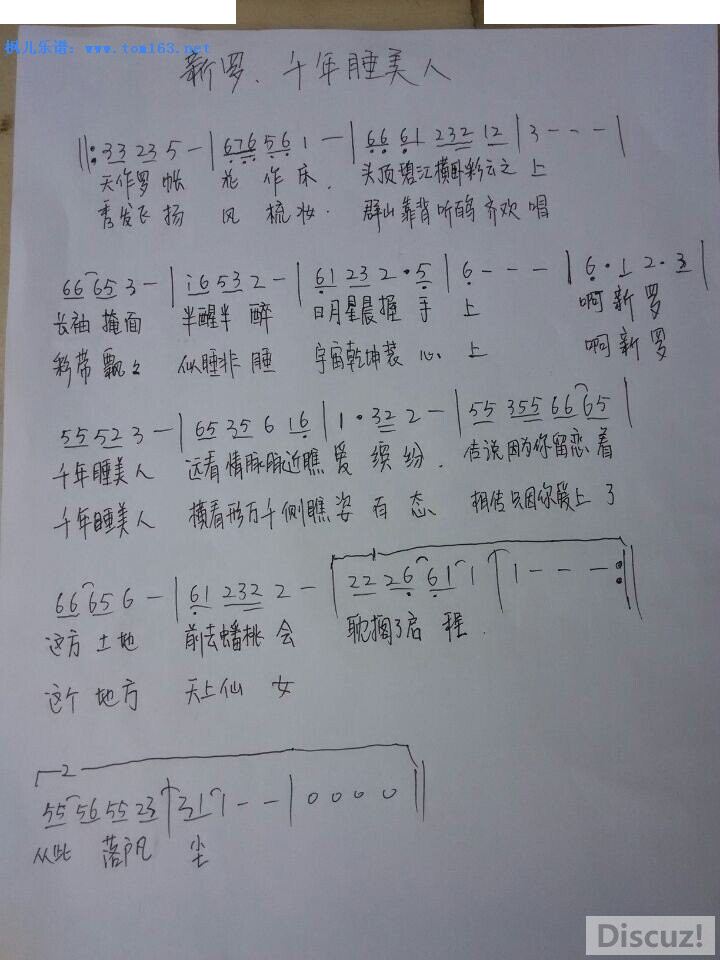 枫儿乐谱：www.tom163.net
新罗、千年睡美人
‖: 33 23 5 - | 676 56 1 - | 66 61 232 12 | 3 - - - |
天作罗帐 花作床、头顶碧江横卧彩云之上
秀发飞扬 风梳妆. 群山靠背听鸥齐欢唱
66 65 3 - | i6 53 2 - | 61 23 2·5 | 6 - - - | 6·1 2·3 |
长袖掩面 半醒半醉 日月星晨握手上 啊新罗
彩带飘飘 似睡非睡 宇宙乾坤装心上 啊新罗
55 52 3 - | 65 35 6 16 | 1·32 2 - | 55 355 66 65 |
千年睡美人 远看情脉脉近瞧爱缤纷. 传说因为你留恋着
千年睡美人 横看形万千侧瞧姿百态 相传只因你爱上了
66 65 6 - | 61 232 2 - | 22 26 61 1 | 1 - - - :‖
这方土地 前去蟠桃会 耽搁了启程.
这个地方 天上仙女
2
55 56 55 23 | 31 1 - - | 0 0 0 0 ‖
从此落户凡尘
Discuz!